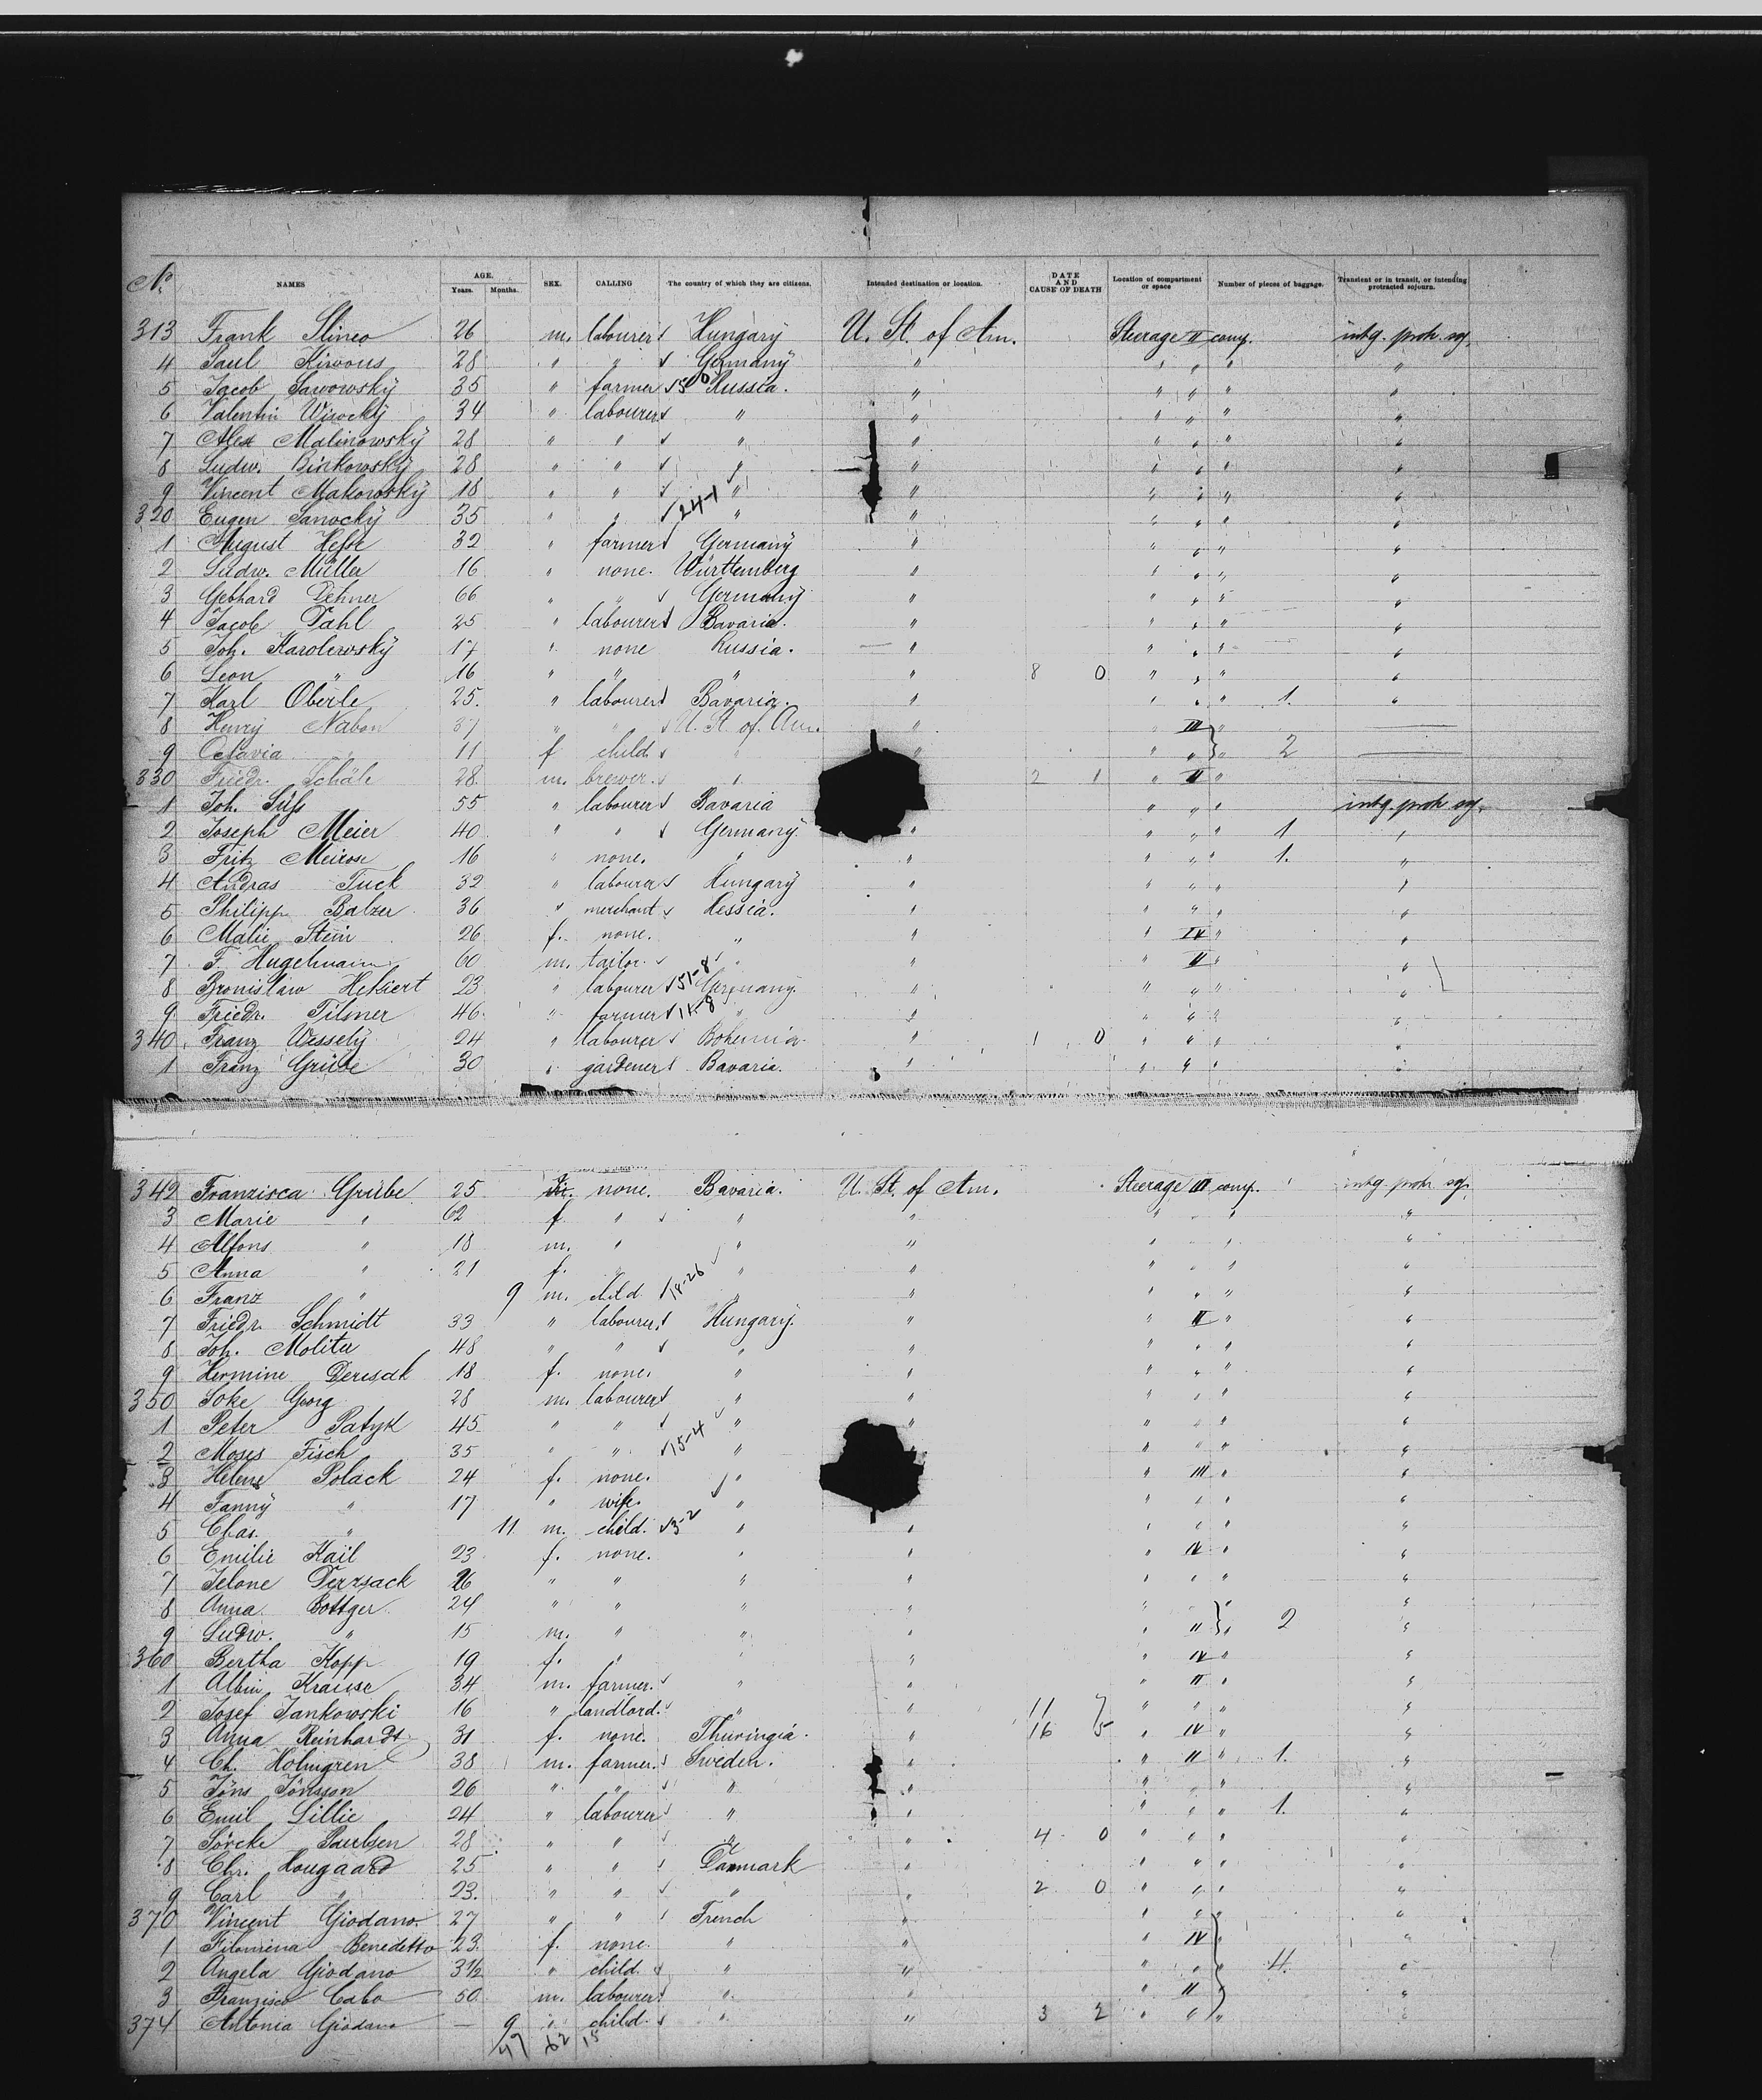 No. NAMES AGE. Years. Months. SEX. CALLING The country of which they are citizens. Intended destination or location. DATE AND CAUSE OF DEATH Location of compartment or space Number of pieces of baggage. Transient or in transit, or intending protracted sojourn.
313 Frank Slinco 26 m. labourer Hungary U. St. of Am. Steerage II comp. intg. protr. soj.
4 Paul 28 " " Germany " " " " "
5 Jacob 35 " farmer 5 0 Russia. " " " " "
6 Valentin Wisocky 34 " labourer " " " " " "
7 Alex Malinowsky 28 " " " " " " " "
8 Ludw. Binkowsky 28 " " " " " " " "
9 Vincent Makowsky 18 " " " " " " " "
320 Eugen Sanocky 35 " " 24-1 " " " " " "
1 August Hesse 32 " farmer Germany " " " " "
2 Ludw. Müller 16 " none. Württemberg " " " " "
3 Gebhard Dehner 66 " " Germany " " " " "
4 Jacob Dahl 25 " labourer Bavaria. " " " " "
5 Joh. Karolewsky 17 " none Russia. " " " " "
6 Leon " 16 " " " " 8 0 " " " "
7 Karl Oberle 25. " labourer Bavaria. " " " " 1. "
8 Henry Nabon 37 " " U. St. of Am. " " III "
9 Octavia " 11 f child. " " " " " 2
330 Friedr. Schäle 28. m. brewer. " 2 1 " II "
1 Joh. Süss 55 " labourer Bavaria " " " intg. protr. soj.
2 Joseph Meier 40 " " Germany. " " " " 1 "
3 Fritz Meirose 16 " none. " " " " " 1. "
4 Andras Tuck 32 " labourer Hungary " " " " "
5 Philipp Balzer 36 " merchant Hessia. " " " " "
6 Malie Stein 26 f. none. " " " IV " "
7 F. Hugelmann 60 m. tailor. " " " II " "
8 Bronislaw Hekiert 23 " labourer 51-8 Germany. " " " " "
9 Friedr. Tilsner 46. " farmer 11-8 " " " " " "
340 Franz Wessely 24 " labourer Bohemia. " 1 0 " " " "
1 Franz Grübe 30 " gardener Bavaria. " " " " "
342 Franzisca Grübe 25 none. Bavaria. U. St. of Am. Steerage III comp. intg. protr. soj.
3 Marie " 62 f. " " " " " "
4 Alfons " 18 m. " " " " " "
5 Anna " 21 f. " " " " " " "
6 Franz " 9 m. child 18-26 " " " " " "
7 Friedr. Schmidt 33 " labourer Hungary. " " II " "
8 Joh. Moliter 48 " " " " " " " "
9 Hermine Deresak 18 f. none. " " " " " "
350 Soke Georg 28 m. labourer " " " " " "
1 Peter Patyk 45. " " " " " " " "
2 Moses Fisch 35 " " 15-4 " " " " " "
3 Helene Polack 24 f. none. " " III " "
4 Fanny " 17 " wife. " " " " "
5 Chas. " 11 m. child. 3-2 " " " " " "
6 Emilie Kail 23 f. none. " " " IV " "
7 Ielone Derzsack 26 " " " " " " " "
8 Anna Bottger 24 " " " " " " "
9 Ludw. " 15 m. " " " " II " 2 "
360 Bertha Kopp 19 f. " " " " IV " "
1 Albin Krause 34 m. farmer. " " " II " "
2 Josef Jankowski 16 " landlord. " " 11 " " " "
3 Anna Reinhardt 31 f. none. Thuringia. " 16 5 " IV " "
4 Ch. Holmgren 38 m. farmer. Sweden. " " II " 1. "
5 Jöns Jönsson 26 " " " " " " " "
6 Emil Lillie 24 " labourer " " " " " 1. "
7 Sörcke Paulsen 28 " " " " 4 0 " " " "
8 Chr. Hougaard 25 " " Danmark " " " " "
9 Carl " 23. " " " " 2 0 " " " "
370 Vincent Giodano. 27 " " French " " " " "
1 Filomena Benedetto 23. f. none. " " " IV " "
2 Angela Giodano 3½ " child " " " " " 4. "
3 Franzisco Cabo 50 m. labourer " " " II " "
374 Antonia Giodano — 9 " child. " " 3 2 " " " "
47 62 15